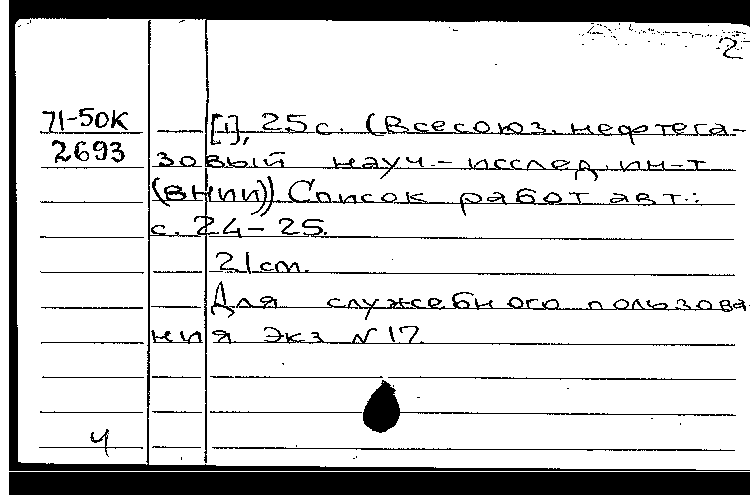 2
71-50К [1], 25 с. (Всесоюз. нефтега-
2693 зовый науч.-исслед. ин-т
(ВНИИ)) Список работ авт.:
с. 24-25.
21 см.
Для служебного пользова-
ния. Экз N 17.
4